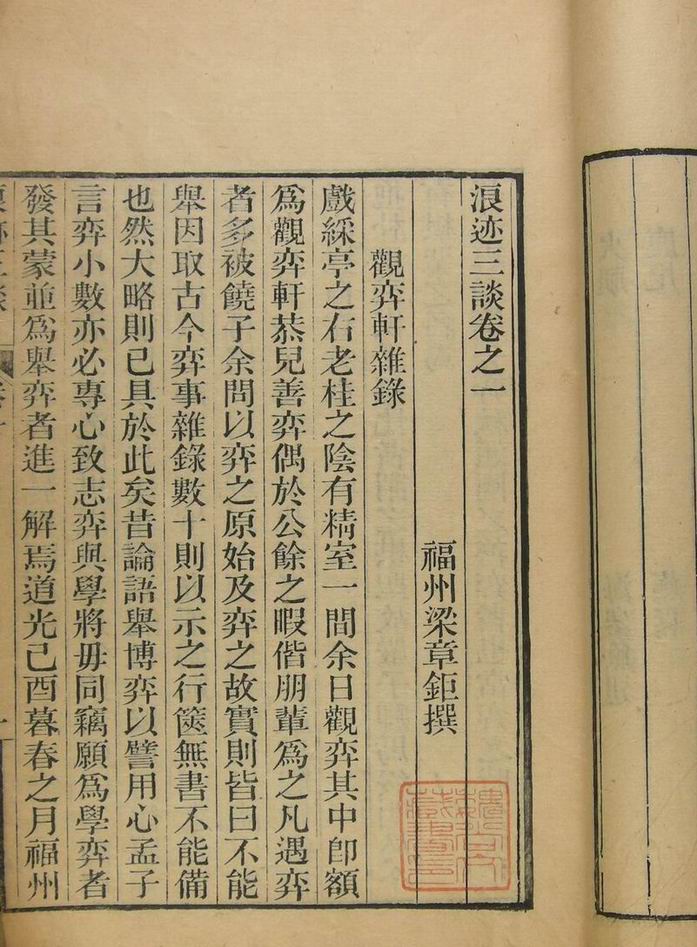 浪迹三談卷之一
福州梁章鉅撰
觀弈軒雜錄
戲綵亭之右老桂之陰有精室一間余日觀弈其中卽額
爲觀弈軒恭兒善弈偶於公餘之暇偕朋輩爲之凡遇弈
者多被饒子余問以弈之原始及弈之故實則皆曰不能
舉因取古今弈事雜錄數十則以示之行篋無書不能備
也然大略則已具於此矣昔論語舉博弈以譬用心孟子
言弈小數亦必專心致志弈與學將毋同竊願爲學弈者
發其蒙並爲舉弈者進一解焉道光己酉暮春之月福州